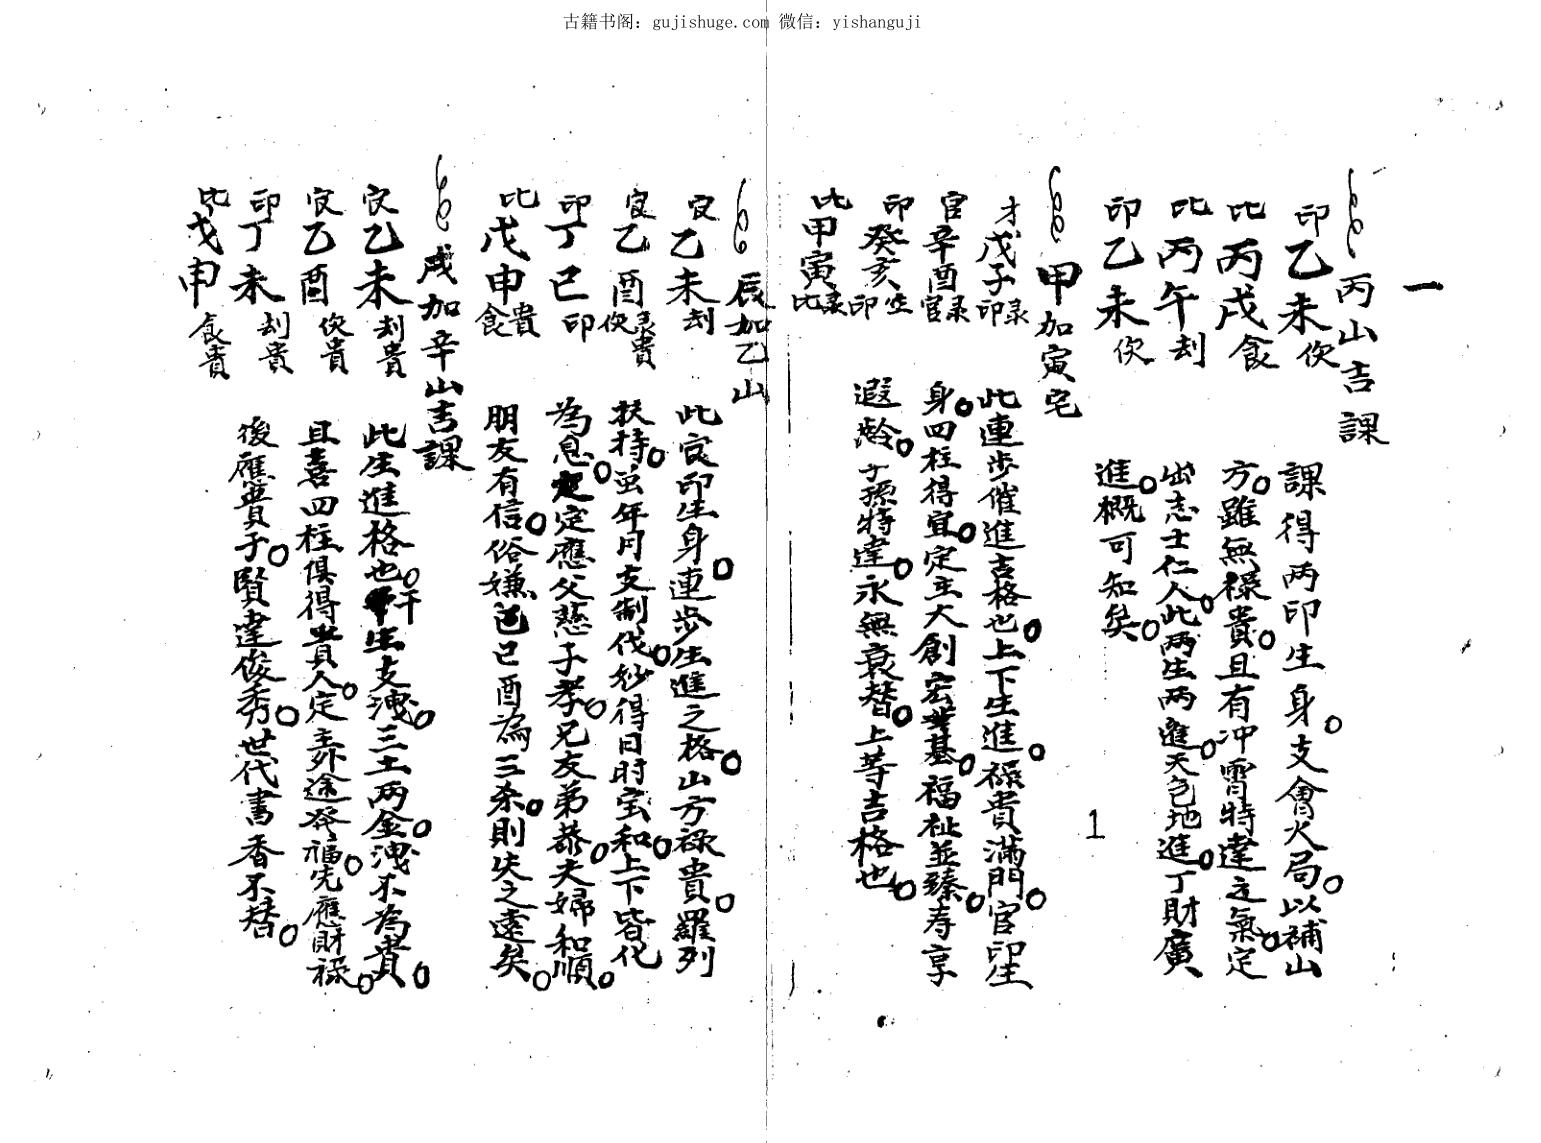 古籍书阁：gujishuge.com 微信：yishanguji
一
丙山吉課
印乙未伤
比丙戌食
比丙午刦
印乙未伤
課得两印生身支會火局以補山
方雖無祿貴且有冲霄特達之氣定
出志士仁人此两生两進天包地進丁財廣
進概可知矣
1
甲加寅宅
才戊子印彔
官辛酉官彔
印癸亥印
比甲寅比彔
此連步催進吉格也上下生進祿貴滿門官印生
身四柱得宜定主大創宏基福祉並臻寿享
遐齡子孫特達永無衰替上等吉格也
辰加乙山
官乙未刦
官乙酉伤彔貴
印丁巳印
比戊申食貴
此官印生身連步生進之格山方祿貴羅列
扶持虽年月支制伐妙得日时宝和上下皆化
為恩定應父慈子孝兄友弟恭夫婦和順
朋友有信俗嫌巳酉為三杀則失之遠矣
戌加辛山吉課
官乙未刦貴
官乙酉伤貴
印丁未刦貴
比戊申食貴
此生進格也干生支洩三土两金洩不為貴
且喜四柱俱得貴人定主外途發福先應財祿
後應貴子賢達俊秀世代書香不替